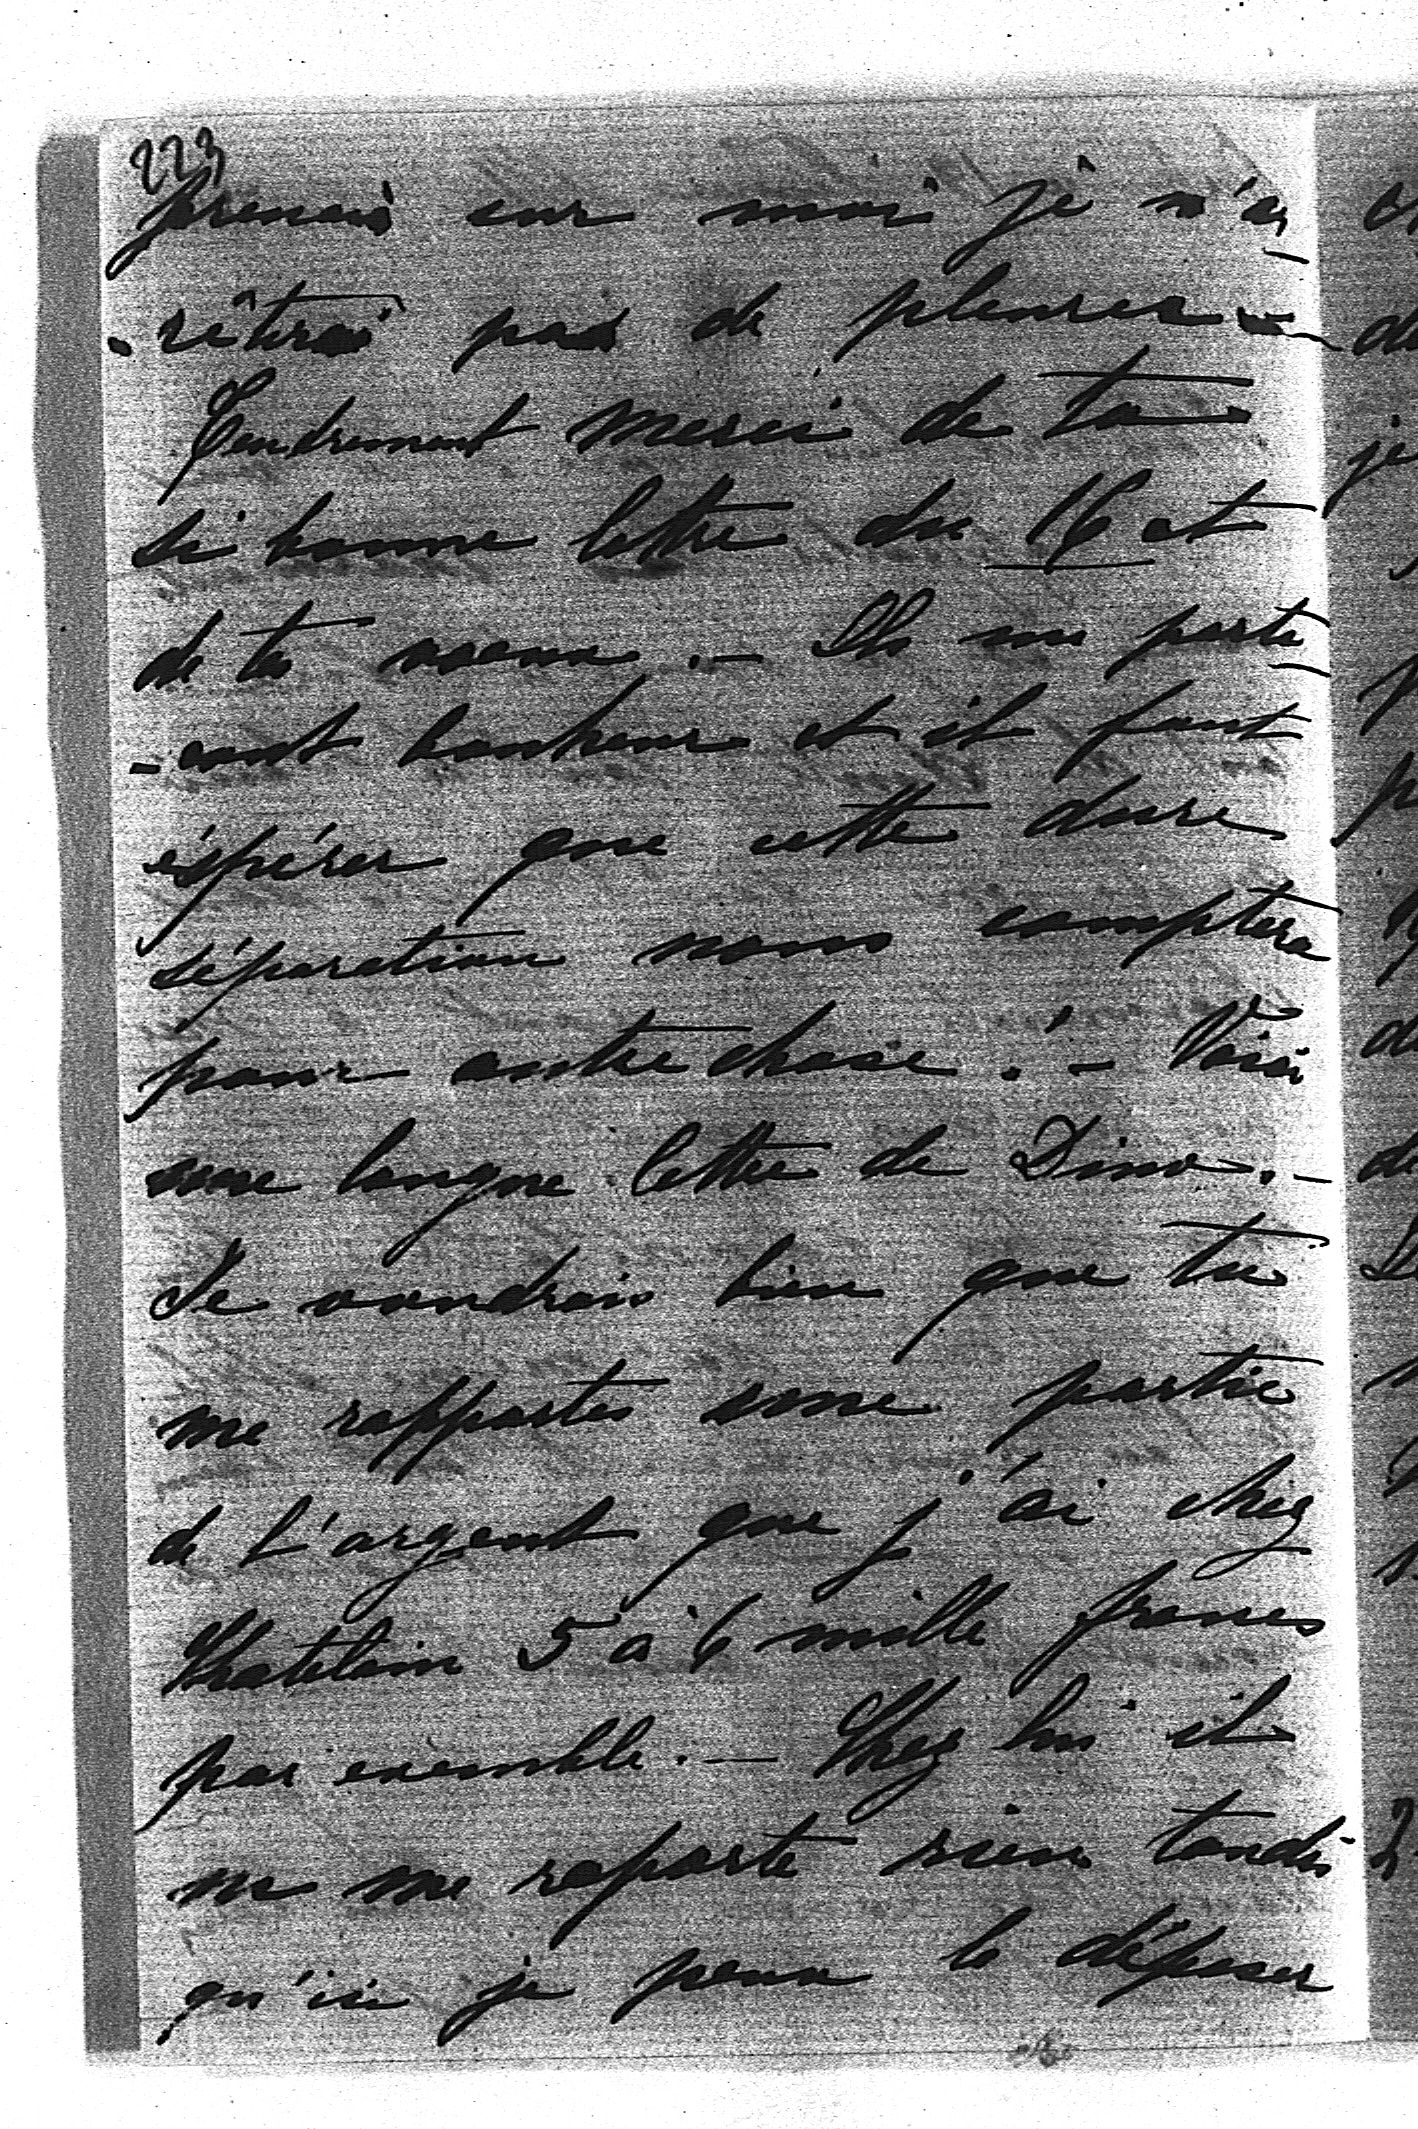 223
prenais sur moi je n'ar
-rêterai pas de pleurer —
Tendrement merci de ta
si bonne lettre du 16 et
de tes voeux. — Ils me porte
-ront bonheur et il faut
éspérer que cette dure
séparation nous comptera
pour autre chose ! — Voici
une longue lettre de Dino. —
Je voudrais bien que tu
me rapportes une partie
de l'argent que j'ai chez
Chatelain 5 à 6 mille francs
par exemple. — Chez lui il
ne me raporte rien tandis
qu'ici je peux le déposer